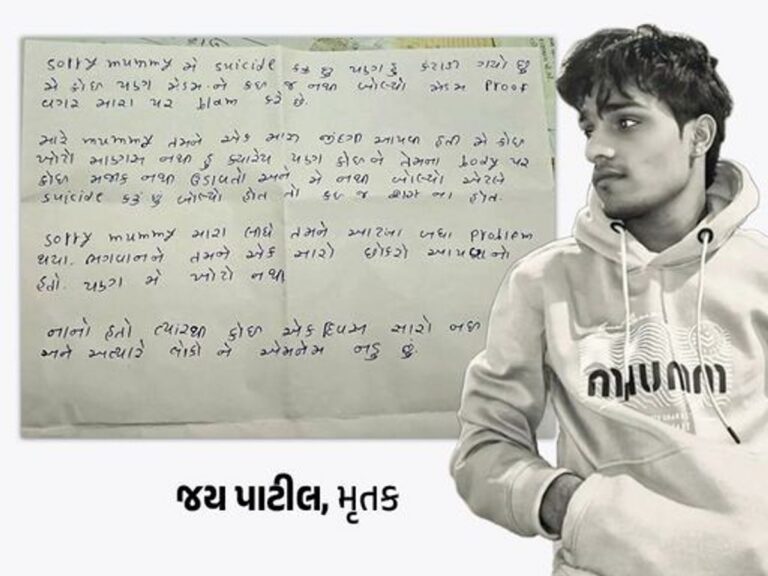 sorry mummy મે suicide કરૂ છુ પણ હું કંટાળી ગયો છું
મે કોઇ પણ મેડમ ને કઇ જ નથી બોલ્યો મેડમ proof
વગર મારા પર blam કરે છે.
મારે mummy તમને એક સારી જીંદગી આપવી હતી મે કોઇ
ખોટો માણસ નથી હું ક્યારેય પણ કોઇ ને તેમના body પર
કોઇ મજાક નથી ઉડાવતો અને મે નથી બોલ્યો એટલે
suicide કરૂ છું બોલ્યો હોત તો કઇ જ ના હોત.
sorry mummy મારા લીધે તમને આટલા બધા problem
થયા. ભગવાનને તમને એક સારો છોકરો આપવાનો
હતો. પણ મે ખોટો નથી
નાનો હતો ત્યારથી કોઇ એક દિવસ સારો નઇ
અને અત્યારે લોકો ને એમનેમ નડુ છું.
જય પાટીલ, મૃતક